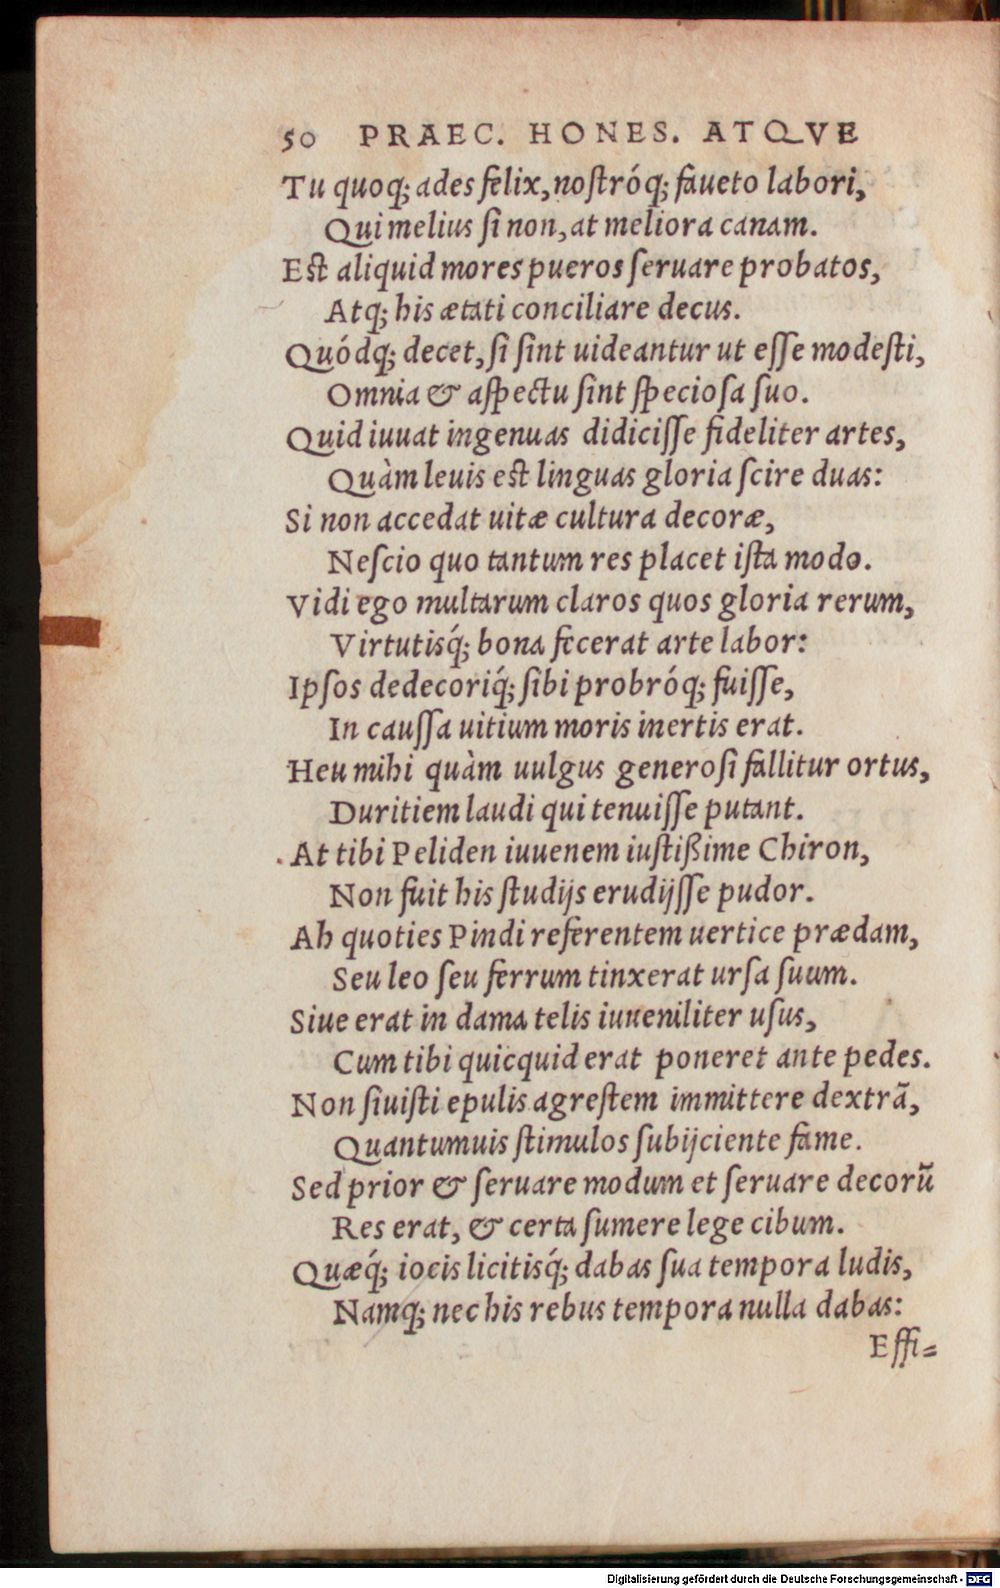 50 PRAEC. HONES. ATQVE
Tu quoq; ades felix, noſtróq; faueto labori,
Qui melius ſi non, at meliora canam.
Eſt aliquid mores pueros ſeruare probatos,
Atq; his ætati conciliare decus.
Quódq; decet, ſi ſint uideantur ut eſſe modeſti,
Omnia & aſpectu ſint ſpecioſa ſuo.
Quid iuuat ingenuas didiciſſe fideliter artes,
Quàm leuis eſt linguas gloria ſcire duas:
Si non accedat uitæ cultura decoræ,
Neſcio quo tantum res placet iſta modo.
Vidi ego multarum claros quos gloria rerum,
Virtutisq́; bona fecerat arte labor:
Ipſos dedecoriq́; ſibi probróq; fuiſſe,
In cauſſa uitium moris inertis erat.
Heu mihi quàm uulgus generoſi fallitur ortus,
Duritiem laudi qui tenuiſſe putant.
At tibi Peliden iuuenem iuſtißime Chiron,
Non fuit his ſtudijs erudijſſe pudor.
Ah quoties Pindi referentem uertice prædam,
Seu leo ſeu ferrum tinxerat urſa ſuum.
Siue erat in dama telis iuueniliter uſus,
Cum tibi quicquid erat poneret ante pedes.
Non ſiuiſti epulis agreſtem immittere dextrã,
Quantumuis ſtimulos ſubijciente fame.
Sed prior & ſeruare modum et ſeruare decorũ
Res erat, & certa ſumere lege cibum.
Quæq́; iocis licitisq́; dabas ſua tempora ludis,
Namq; nec his rebus tempora nulla dabas:
Effi=
Digitalisierung gefördert durch die Deutsche Forschungsgemeinschaft - DFG